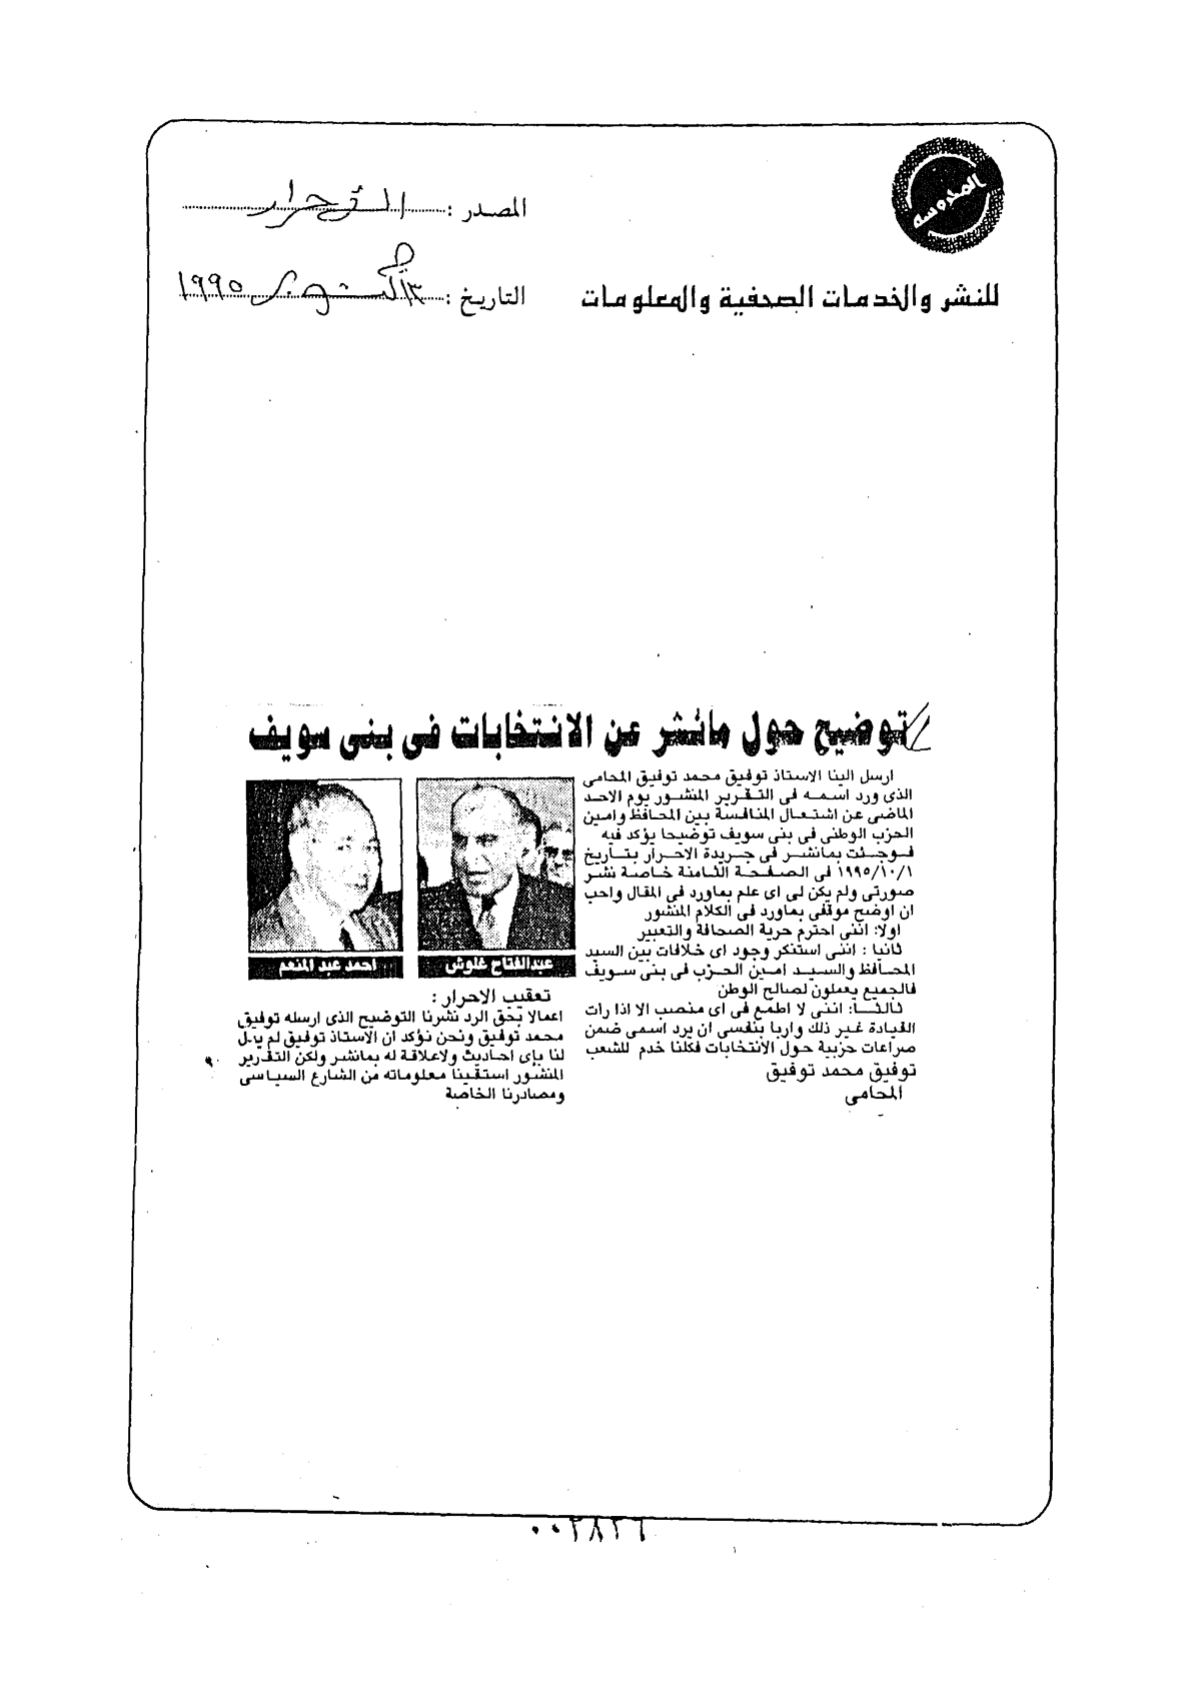 المحروسة
للنشر والخدمات الصحفية والمعلومات
المصدر : الأحرار
التاريخ : أكتوبر ١٩٩٥
توضيح حول مانشر عن الانتخابات فى بنى سويف
ارسل الينا الاستاذ توفيق محمد توفيق المحامى
الذى ورد اسمه فى التقرير المنشور يوم الاحد
الماضى عن اشتعال المنافسة بين المحافظ وامين
الحزب الوطنى فى بنى سويف توضيحا يؤكد فيه
فوجئت بمانشر فى جريدة الاحرار بتاريخ
١٩٩٥/١٠/١ فى الصفحة الثامنة خاصة نشر
صورتى ولم يكن لى اى علم بماورد فى المقال واحب
ان اوضح موقفى بماورد فى الكلام المنشور
اولا: اننى احترم حرية الصحافة والتعبير
ثانيا : اننى استنكر وجود اى خلافات بين السيد
المحافظ والسيد امين الحزب فى بنى سويف
فالجميع يعملون لصالح الوطن
ثالثا: اننى لا اطمع فى اى منصب الا اذا رات
القيادة غير ذلك واربا بنفسى ان يرد اسمى ضمن
صراعات حزبية حول الانتخابات فكلنا خدم للشعب
توفيق محمد توفيق
المحامى
عبدالفتاح غلوش
احمد عبد المنعم
تعقيب الاحرار :
اعمالا بحق الرد نشرنا التوضيح الذى ارسله توفيق
محمد توفيق ونحن نؤكد ان الاستاذ توفيق لم يدل
لنا باى احاديث ولاعلاقة له بمانشر ولكن التقرير
المنشور استقينا معلوماته من الشارع السياسى
ومصادرنا الخاصة
٠٠٢٨٢٦